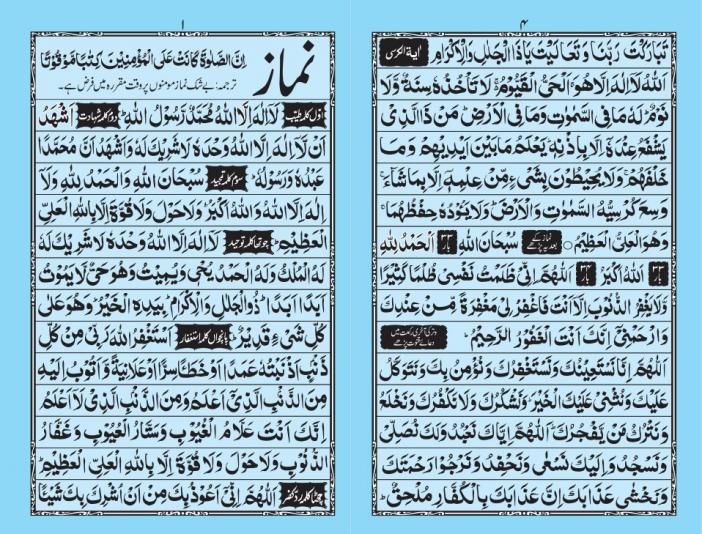 ۱
نماز
اِنَّ الصَّلٰوةَ كَانَتْ عَلَى الْمُؤْمِنِيْنَ كِتٰبًا مَّوْقُوْتًا
ترجمہ: بے شک نماز مومنوں پر وقت مقررہ میں فرض ہے۔
اوّل کلمہ طیّب لَآ اِلٰهَ اِلَّا اللهُ مُحَمَّدٌ رَّسُوْلُ اللهِ دوم کلمہ شہادت اَشْهَدُ
اَنْ لَّآ اِلٰهَ اِلَّا اللهُ وَحْدَهٗ لَا شَرِيْكَ لَهٗ وَاَشْهَدُ اَنَّ مُحَمَّدًا
عَبْدُهٗ وَرَسُوْلُهٗ سوم کلمہ تمجید سُبْحَانَ اللهِ وَالْحَمْدُ لِلّٰهِ وَلَآ
اِلٰهَ اِلَّا اللهُ وَاللهُ اَكْبَرُ وَلَا حَوْلَ وَلَا قُوَّةَ اِلَّا بِاللهِ الْعَلِيِّ
الْعَظِيْمِ چوتھا کلمہ توحید لَآ اِلٰهَ اِلَّا اللهُ وَحْدَهٗ لَا شَرِيْكَ لَهٗ
لَهُ الْمُلْكُ وَلَهُ الْحَمْدُ يُحْيٖ وَيُمِيْتُ وَهُوَ حَيٌّ لَّا يَمُوْتُ
اَبَدًا اَبَدًا ذُو الْجَلٰلِ وَالْاِكْرَامِ بِيَدِهِ الْخَيْرُ وَهُوَ عَلٰى
كُلِّ شَيْءٍ قَدِيْرٌ پانچواں کلمہ استغفار اَسْتَغْفِرُ اللهَ رَبِّيْ مِنْ كُلِّ
ذَنْبٍ اَذْنَبْتُهٗ عَمَدًا اَوْ خَطَأً سِرًّا اَوْ عَلَانِيَةً وَّاَتُوْبُ اِلَيْهِ
مِنَ الذَّنْبِ الَّذِيْٓ اَعْلَمُ وَمِنَ الذَّنْبِ الَّذِيْ لَآ اَعْلَمُ
اِنَّكَ اَنْتَ عَلَّامُ الْغُيُوْبِ وَسَتَّارُ الْعُيُوْبِ وَغَفَّارُ
الذُّنُوْبِ وَلَا حَوْلَ وَلَا قُوَّةَ اِلَّا بِاللهِ الْعَلِيِّ الْعَظِيْمِ
چھٹا کلمہ ردّ کفر اَللّٰهُمَّ اِنِّيْٓ اَعُوْذُ بِكَ مِنْ اَنْ اُشْرِكَ بِكَ شَيْئًا
۴
تَبَارَكْتَ رَبَّنَا وَتَعَالَيْتَ يَا ذَا الْجَلٰلِ وَالْاِكْرَامِ اٰیة الکرسی
اَللهُ لَآ اِلٰهَ اِلَّا هُوَ اَلْحَيُّ الْقَيُّوْمُ لَا تَاْخُذُهٗ سِنَةٌ وَّلَا
نَوْمٌ لَهٗ مَا فِي السَّمٰوٰتِ وَمَا فِي الْاَرْضِ مَنْ ذَا الَّذِيْ
يَشْفَعُ عِنْدَهٗٓ اِلَّا بِاِذْنِهٖ يَعْلَمُ مَا بَيْنَ اَيْدِيْهِمْ وَمَا
خَلْفَهُمْ وَلَا يُحِيْطُوْنَ بِشَيْءٍ مِّنْ عِلْمِهٖٓ اِلَّا بِمَا شَآءَ
وَسِعَ كُرْسِيُّهُ السَّمٰوٰتِ وَالْاَرْضَ وَلَا يَئُوْدُهٗ حِفْظُهُمَا
وَهُوَ الْعَلِيُّ الْعَظِيْمُ نماز کے بعد یہ پڑھے سُبْحَانَ اللهِ ۳۳ بار اَلْحَمْدُ لِلّٰهِ
۳۳ بار اَللهُ اَكْبَرُ ۳۴ بار اَللّٰهُمَّ اِنِّيْ ظَلَمْتُ نَفْسِيْ ظُلْمًا كَثِيْرًا
وَّلَا يَغْفِرُ الذُّنُوْبَ اِلَّآ اَنْتَ فَاغْفِرْ لِيْ مَغْفِرَةً مِّنْ عِنْدِكَ
وَارْحَمْنِيْٓ اِنَّكَ اَنْتَ الْغَفُوْرُ الرَّحِيْمُ وتر کی آخری رکعت میں دعائے قنوت پڑھے
اَللّٰهُمَّ اِنَّا نَسْتَعِيْنُكَ وَنَسْتَغْفِرُكَ وَنُؤْمِنُ بِكَ وَنَتَوَكَّلُ
عَلَيْكَ وَنُثْنِيْ عَلَيْكَ الْخَيْرَ وَنَشْكُرُكَ وَلَا نَكْفُرُكَ وَنَخْلَعُ
وَنَتْرُكُ مَنْ يَّفْجُرُكَ اَللّٰهُمَّ اِيَّاكَ نَعْبُدُ وَلَكَ نُصَلِّيْ
وَنَسْجُدُ وَاِلَيْكَ نَسْعٰى وَنَحْفِدُ وَنَرْجُوْا رَحْمَتَكَ
وَنَخْشٰى عَذَابَكَ اِنَّ عَذَابَكَ بِالْكُفَّارِ مُلْحِقٌ